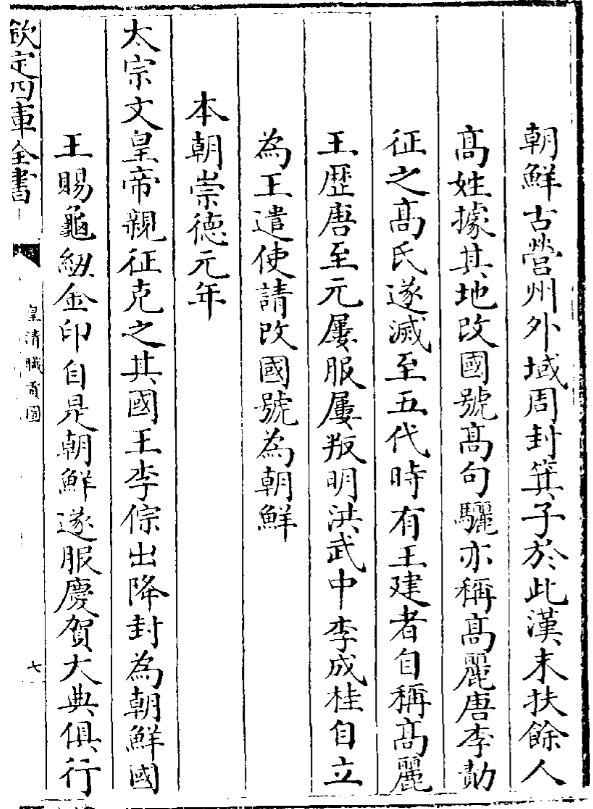 朝鮮古營州外域周封箕子於此漢末扶餘人
髙姓據其地改國號髙句驪亦稱髙麗唐李勣
征之髙氏遂滅至五代時有王建者自稱髙麗
王歴唐至元屢服屢叛明洪武中李成桂自立
為王遣使請改國號為朝鮮
本朝崇德元年
太宗文皇帝親征克之其國王李倧出降封為朝鮮國
王賜龜紐金印自是朝鮮遂服慶賀大典俱行
欽定四庫全書
皇清職貢圖
七